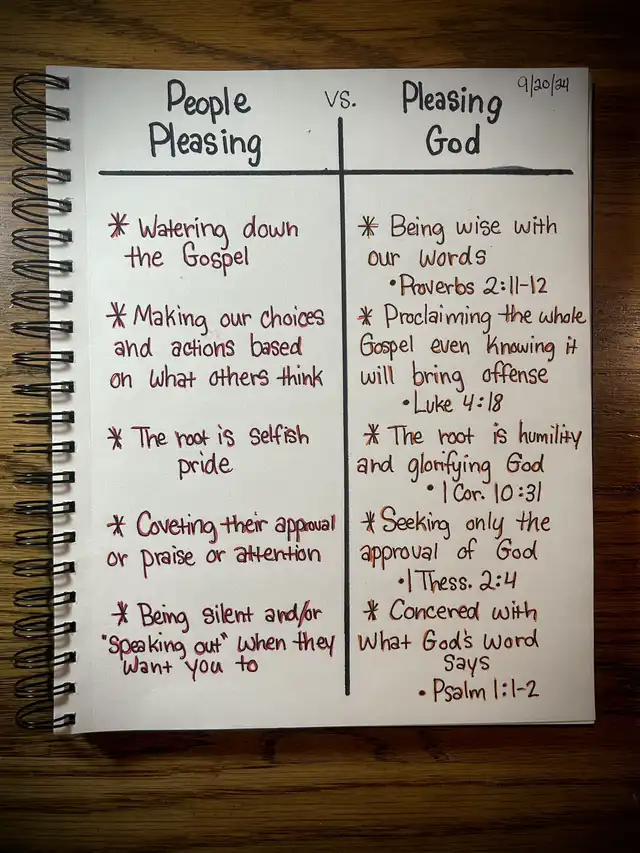 9/20/24
People vs. Pleasing
Pleasing God
* Watering down
the Gospel
* Making our choices
and actions based
on what others think
* The root is selfish
pride
* Coveting their approval
or praise or attention
* Being silent and/or
"speaking out" when they
want you to
* Being wise with
our words
• Proverbs 2:11-12
* Proclaiming the whole
Gospel even knowing it
will bring offense
• Luke 4:18
* The root is humility
and glorifying God
• 1 Cor. 10:31
* Seeking only the
approval of God
• 1 Thess. 2:4
* Concered with
what God's word
says
• Psalm 1:1-2